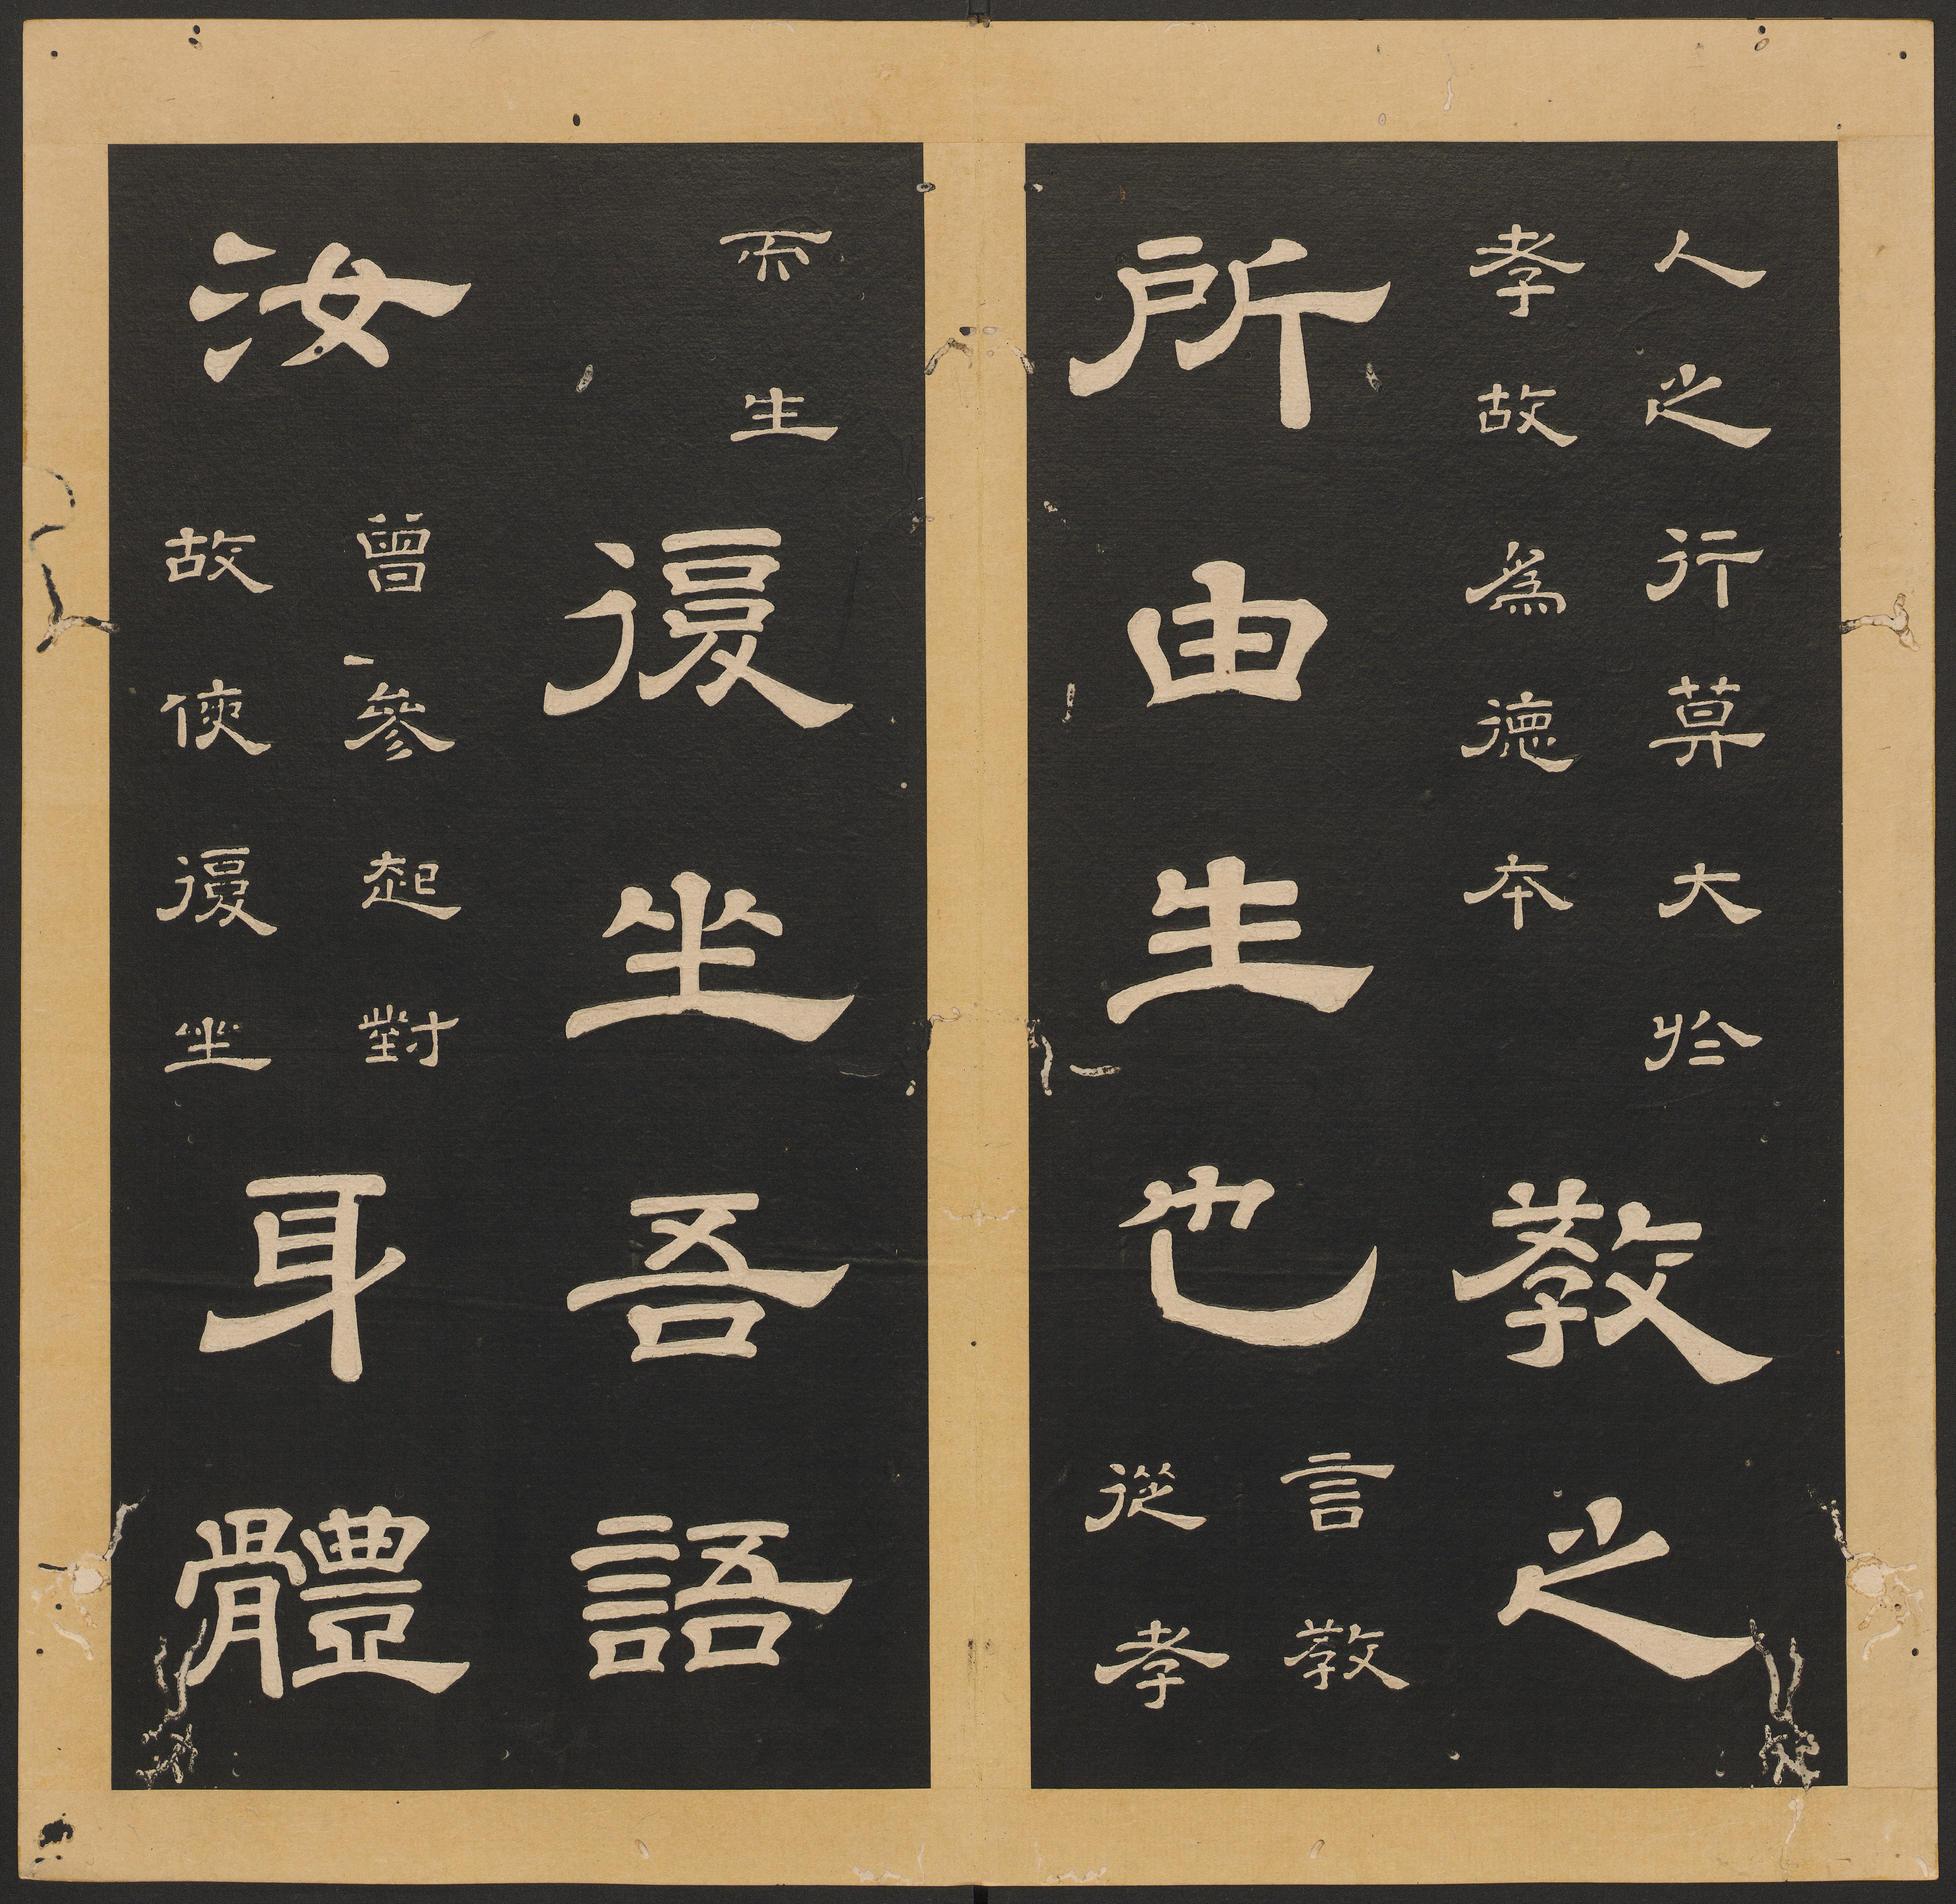 人之行莫大於
孝故為德本
教之
所由生也
言教
從孝
而生
復坐吾語
汝
曾參起對
故使復坐
身體